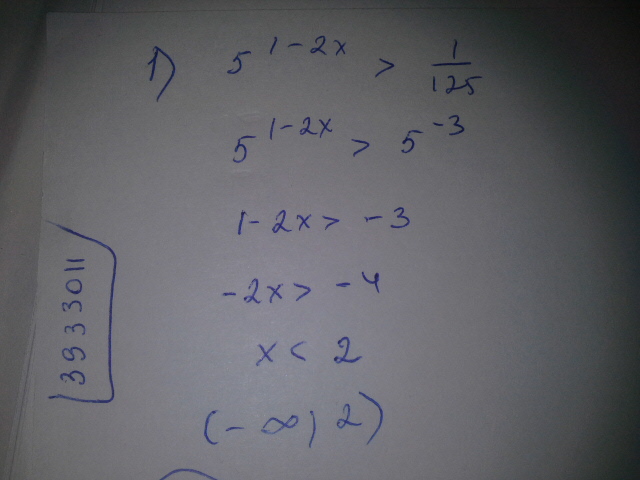 1) 5^(1-2x) > 1/125
5^(1-2x) > 5^(-3)
1-2x > -3
-2x > -4
x < 2
(-∞; 2)
39333011